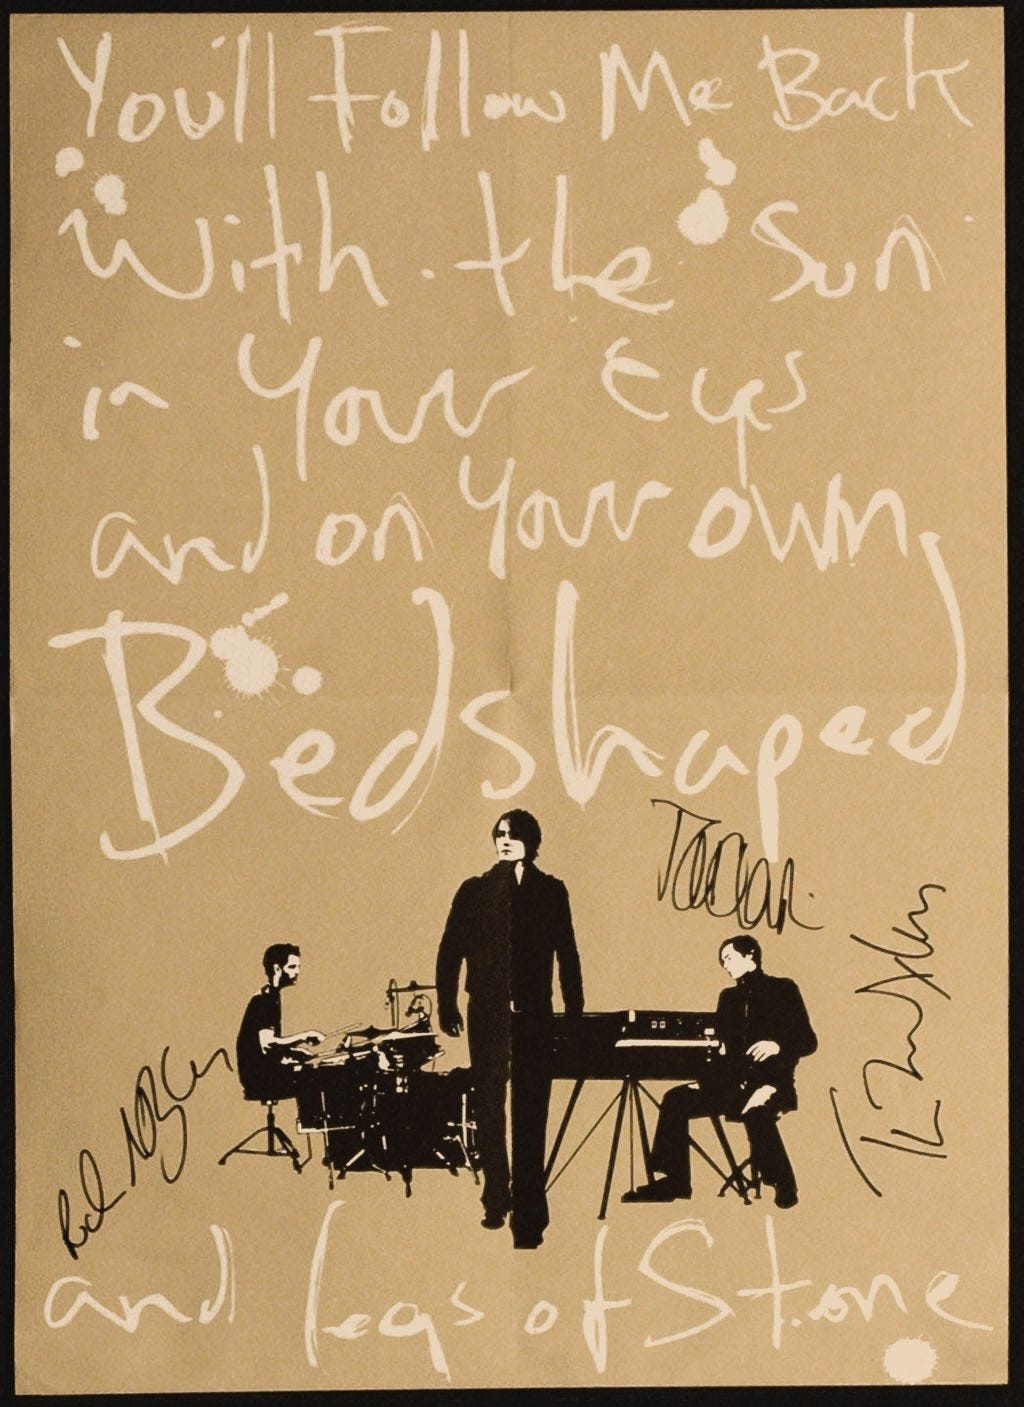 You'll Follow Me Back
With the Sun
in Your Eyes
and on Your own,
Bedshaped
and legs of Stone